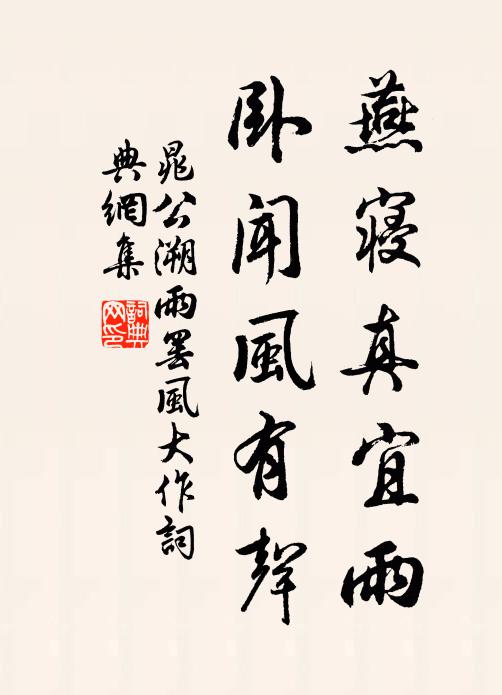 燕寝真宜雨
卧闻風有聲
晁公溯雨罢風大作詞
典網集
詞典
网印